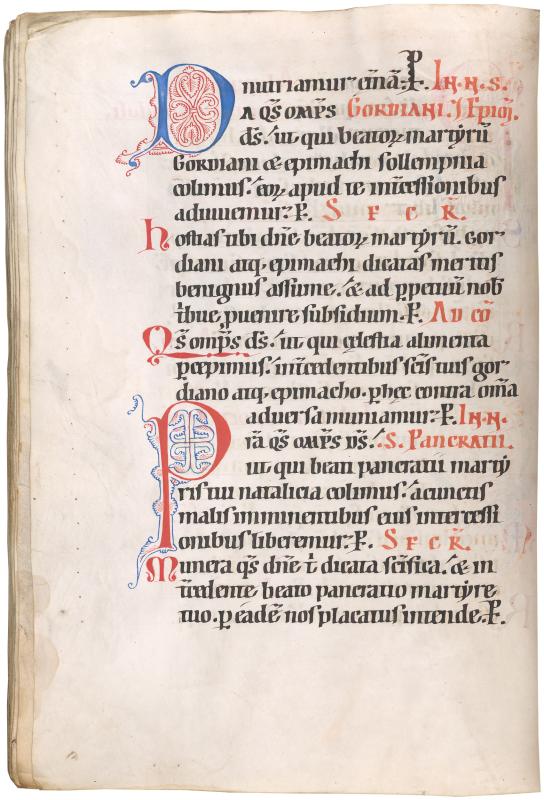 muniamur. om̄a. P. IN. N. S.
A q̄s om̄ps GORDIANI. ⁊ Epim̄.
ds̄. ut qui beatoꝝ martyrū
Gordiani & epimachi sollempnia
colimus. eoꝝ apud te int̄cessionibus
adiuuemur. P. S F C R̄.
hostias tibi dn̄e beatoꝝ martyrū. Gor-
diani atq; epimachi dicatas meritis
benignus assume. & ad ꝑpetuū nob̄
t̄bue ꝓuenire subsidium. P. AD CŌ
Q̄s om̄ps ds̄. ut qui cęlestia alimenta
ꝑcepimus. int̄cedentibus sc̄is tuis gor-
diano atq; epimacho. ꝑ hec contra om̄a
aduersa muniamur. P. IN. N.
ra q̄s om̄ps ds̄. S. PANCRATII.
ut qui beati pancratii marty
ris tui natalicia colimus. a cunctis
malis imminentibus eius intercessi
onibus liberemur. P. S F C R̄.
Munera q̄s dn̄e t̄ dicata sc̄ifica. & in
t̄cedente beato pancratio martyre
tuo. ꝑ eadē nos placatus intende. P.